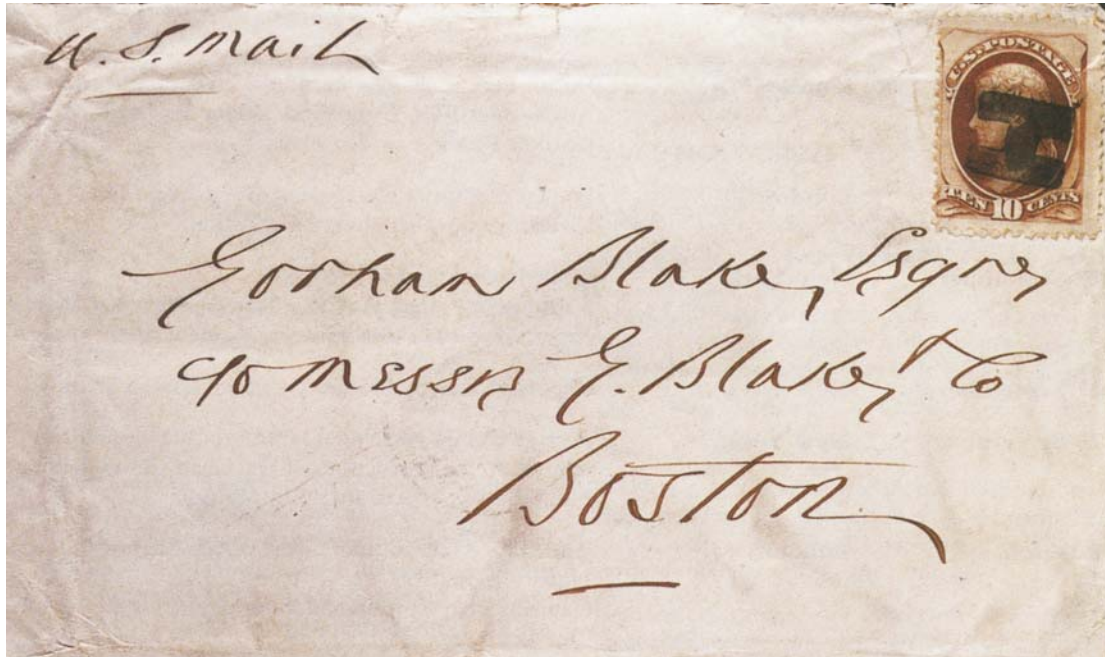 U.S. Mail
U.S. POSTAGE
TEN 10 CENTS
Gorham Blake, Esqre,
c/o Messrs G. Blake & Co
Boston